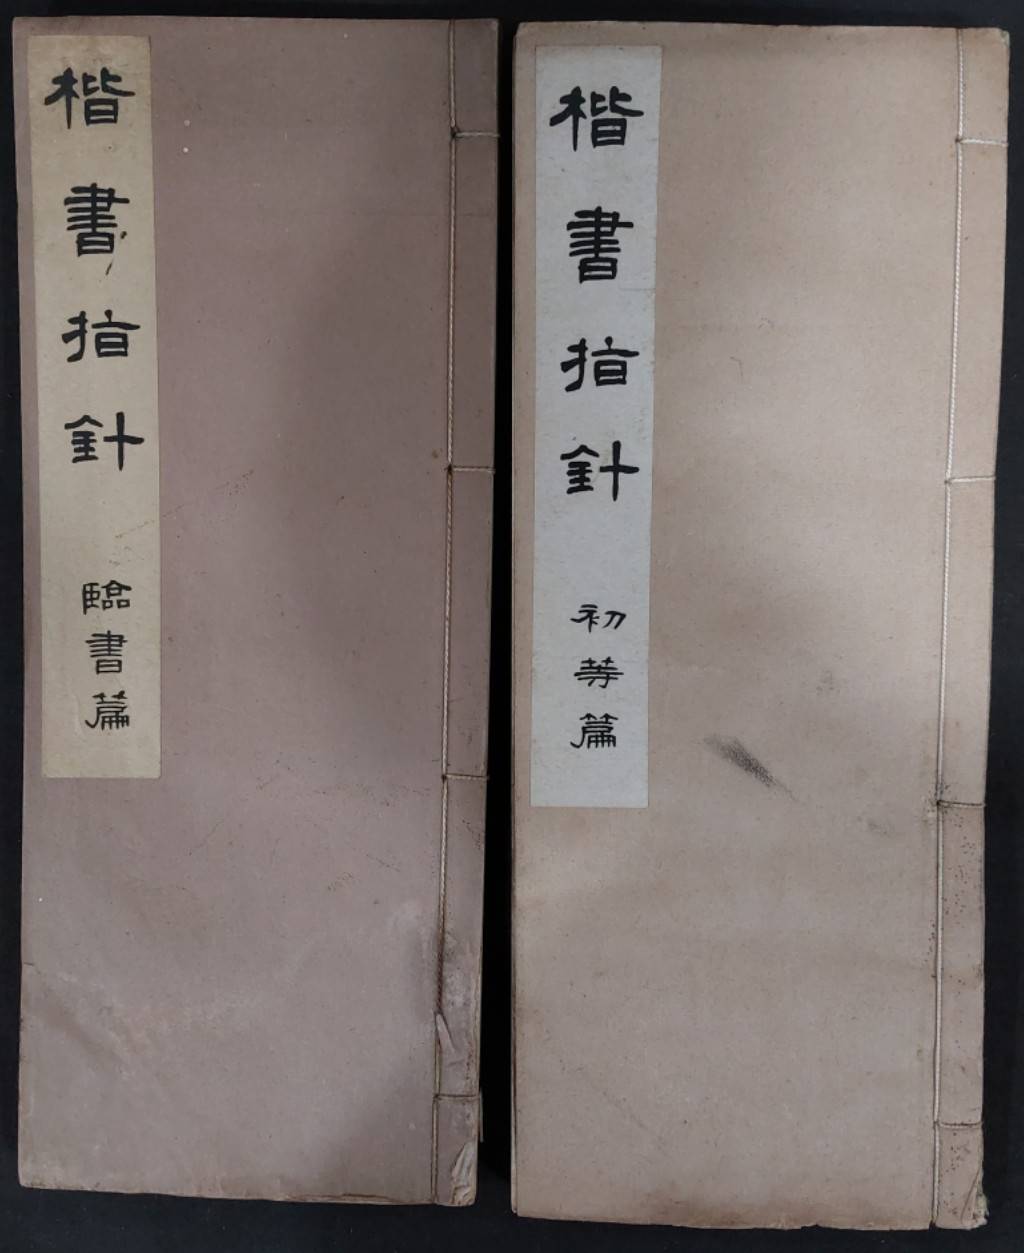 楷書指針
臨書篇
楷書指針
初等篇